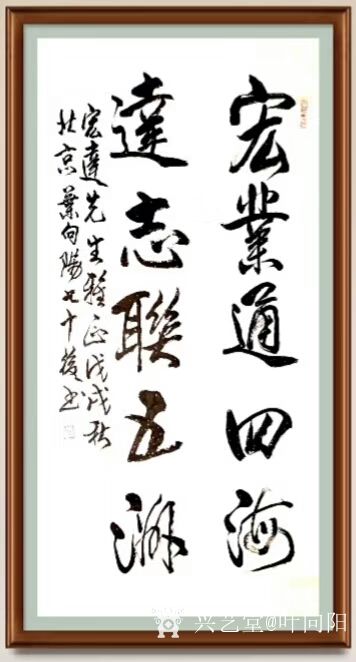 宏業通四海
達志聯五湖
宏達先生雅正戊戌秋
北京葉向陽七十後书
兴艺堂@叶向阳